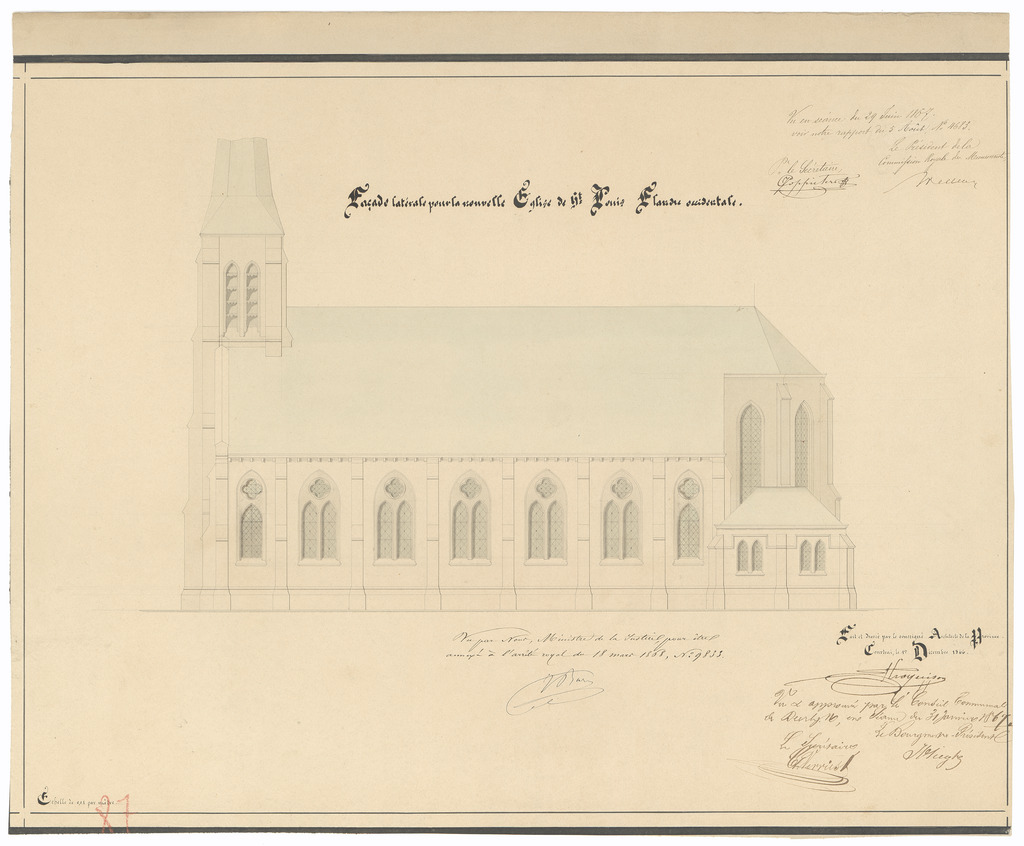 Vu en séance du 29 Juin 1867.
voir notre rapport du 3 Août, N° 4683.
Le Président de la
Commission Royale des Monuments
Pr le Secrétaire
Façade latérale pour la nouvelle Eglise de St Louis Flandre occidentale.
Vu par Nous, Ministre de la Justice pour être
annexé à l'arrêté royal du 18 mars 1868, N° 9833
Fait et dressé par le soussigné Architecte de la Province
Courtrai, le 1er Décembre 1866.
Vu & approuvé par le Conseil Communal
de Deerlyk, en séance du 31 Janvier 1867.
Le Bourgmestre Président
Le Secrétaire
Echelle de par mètre.
87